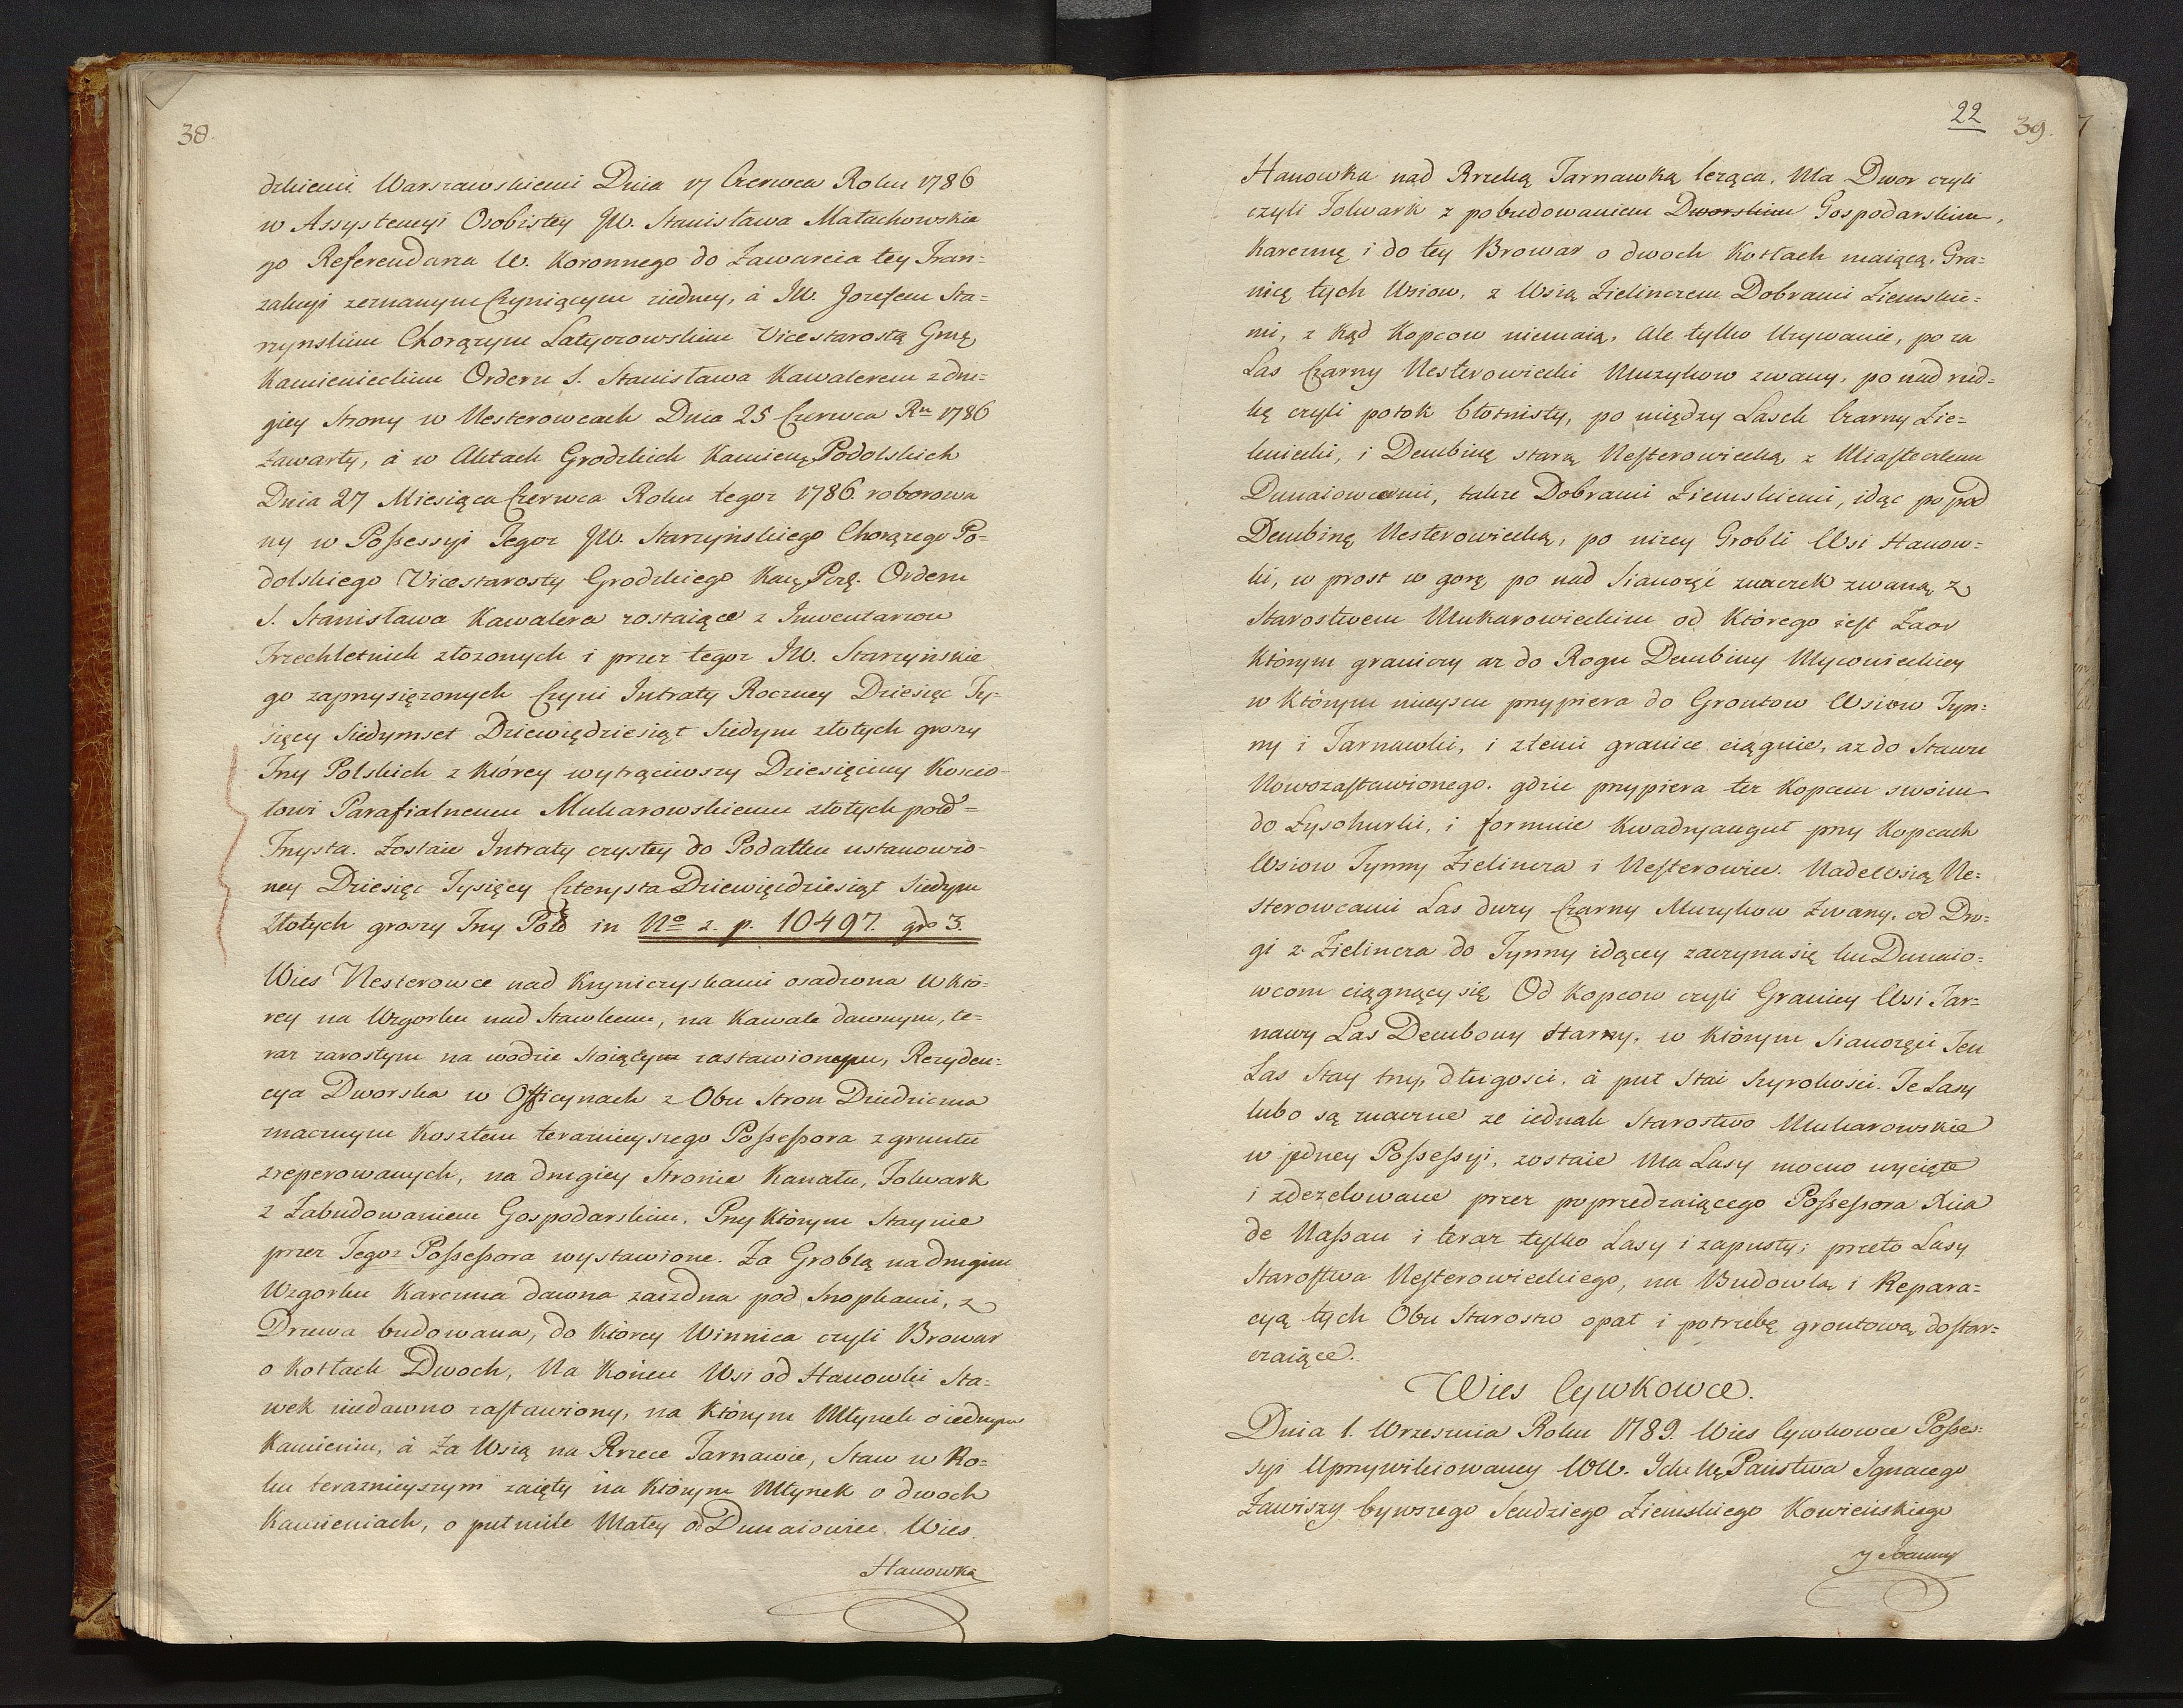 38.
dzkiemi Warszawskiemi Dnia 17 Czerwca Roku 1786
w Assystencyi Osobistey JW. Stanisława Małachowskie
go Referendarza W. Koronnego do Zawarcia tey Tran=
zakcyi zeznanym Czyniącym ziedney, á JW. Jozefem Sta=
rzynskim Chorązym Latyczowskim Vicestarostą Gruę
Kamienieckim Orderu S. Stanisława Kawalerem z dru=
giey Strony w Nesterowcach Dnia 25 Czerwca Ru 1786
Zawarty, á w Aktach Grodzkich Kamienę Podolskich
Dnia 27 Miesiąca Czerwca Roku tegoz 1786 roborowa
ny w Possessyi Tegoz JW. Starzyńskiego Chorązego Po-
dolskiego Vicestarosty Grodzkiego Kaę Porę. Orderu
S. Stanisława Kawalera zostaiące z Inwentarzow
Trzechletnich złozonych i przez tegoz JW. Starzyńskie
go zaprzysięzonych Czyni Intraty Roczney Dziesięc Ty-
sięcy Siedymset Dziewiędziesiąt Siedym złotych groszy
Trzy Polskich z którey wytrąciwszy Dziesięciny Koscio-
łowi Parafialnemu Mukarowskiemu złotych pold=
Trzysta. Zostaie Intraty czystey do Podatku ustanowio-
ney Dziesięc Tysięcy Czterysta Dziewięcdziesiąt Siedym
Złotych groszy Trzy Pold in No z. p. 10497. gro 3.
Wies Nesterowce nad Krynicznyskami osadzona w kto=
rey na Wzgorku nad Stawkiem, na Kawale dawnym, te=
raz zarostym na wodzie stoiącym zastawionym, Rezyden=
cya Dworska w Officynach z Obu Stron Dziedzica
znacznym Kosztem teraznieyszego Possessora z gruntu
zreperowanych, na drugiey Stronie Kanału, Folwark
z Zabudowaniem Gospodarskim. Przy którym Staynie
przez Tegoz Possessora wystawione. Za Groblą na drugim
Wzgorku Karczma dawna zaiezdna pod Snopkami, z
Drzewa budowana, do którey Winnica czyli Browar
o Kotłach Dwoch, Na Końcu Wsi od Hanowki Sta=
wek niedawno zastawiony, na którym Młynek o iednym
Kamieniu, á Za Wsią na Rzece Tarnawie, Staw w Ro=
ku teraznieyszym zaięty na którym Młynek o dwoch
Kamieniach, o puł mile Małey od Dunaiowiec. Wies
Hanowka
22
39.
Hanowka nad Rzeką Tarnawką leząca. Ma Dwor czyli
czyli Folwark z pobudowaniem Dworskim Gospodarskim,
Karczmę i do tey Browar o dwoch Kotłach maiącą. Gra=
nicę tych Wsiow, z Wsią Zielinczem Dobrami Ziemskie=
mi, z kąd Kopcow niemaią, Ale tylko Uzywanie, po za
Las Czarny Nesterowiecki Muzykow zwany, po nad rud=
kę czyli potok błotnisty, po między Lasek Czarny Zie=
liniecki, i Dembinę starą Nesterowiecką z Miasteczkiem
Dunaiowcami, takze Dobrami Ziemskiemi, idąc po pod
Dembinę Nesterowiecką, po nizey Grobli Wsi Hanow=
ki, w prost w gorę po nad Sianozęć znaczek zwaną z
Starostwem Mukarowieckim od Którego iest Zaor
którym graniczy az do Rogu Dembiny Mycowieckiey
w którym mieyscu przypiera do Grontow Wsiow Tyn=
ny i Tarnawki, i ztemi granice ciągnie, az do Stawu
Nowozastawionego. gdzie przypiera tez Kopcem swoim
do Łysohurki, i formuie Kwadryanguł przy Kopcach
Wsiow Tynny Zielincza i Nesterowiec. Nadewsią Ne=
sterowcami Las duzy Czarny Muzykow Zwany, od Dro=
gi z Zielincza do Tynny idącey zaczyna się ku Dunaio=
wcom ciągnący się Od Kopcow czyli Granicy Wsi Tar=
nawy Las Dembowy Starzy. w którym Sianozęci Ten
Las Stay trzy, długosci, á puł Stai Szyrokości. Te Lasy
lubo są znaczne ze iednak Starostwo Mukarowskie
w jedney Possessyi, zostaie Ma Lasy mocno wycięte
i zdezelowane przez poprzedzaiącego Possessora Xcia
de Nassau i teraz tylko Lasy i zapusty; przeto Lasy
Starostwa Nesterowieckiego, na Budowlą i Repara=
cyą tych Obu Starostw opał i potrzebę grontową dostar=
czaiące.
Wies Cywkowce.
Dnia 1. Wrzesnia Roku 1789. Wies Cywkowce Posses=
syi Uprzywileiowaney WW. Ich Mę Państwa Ignacego
Zawiszy bywszego Sendziego Ziemskiego Kowieńskiego
y Joanny